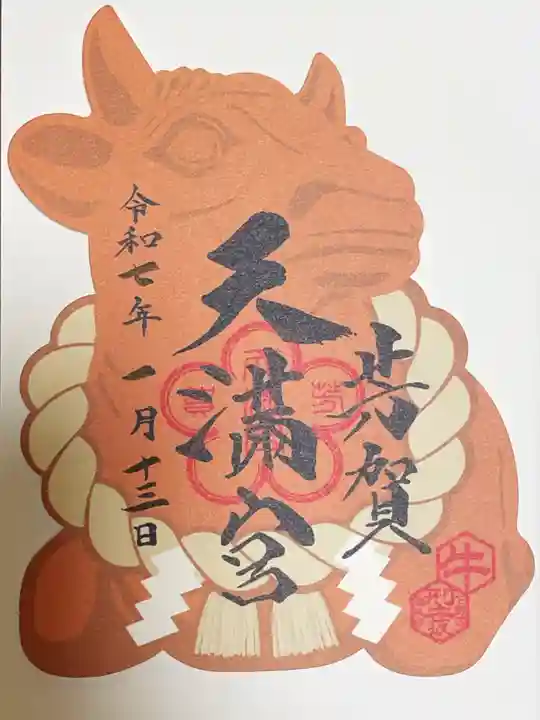 賀
天満宮
令和七年 一月十三日
牛